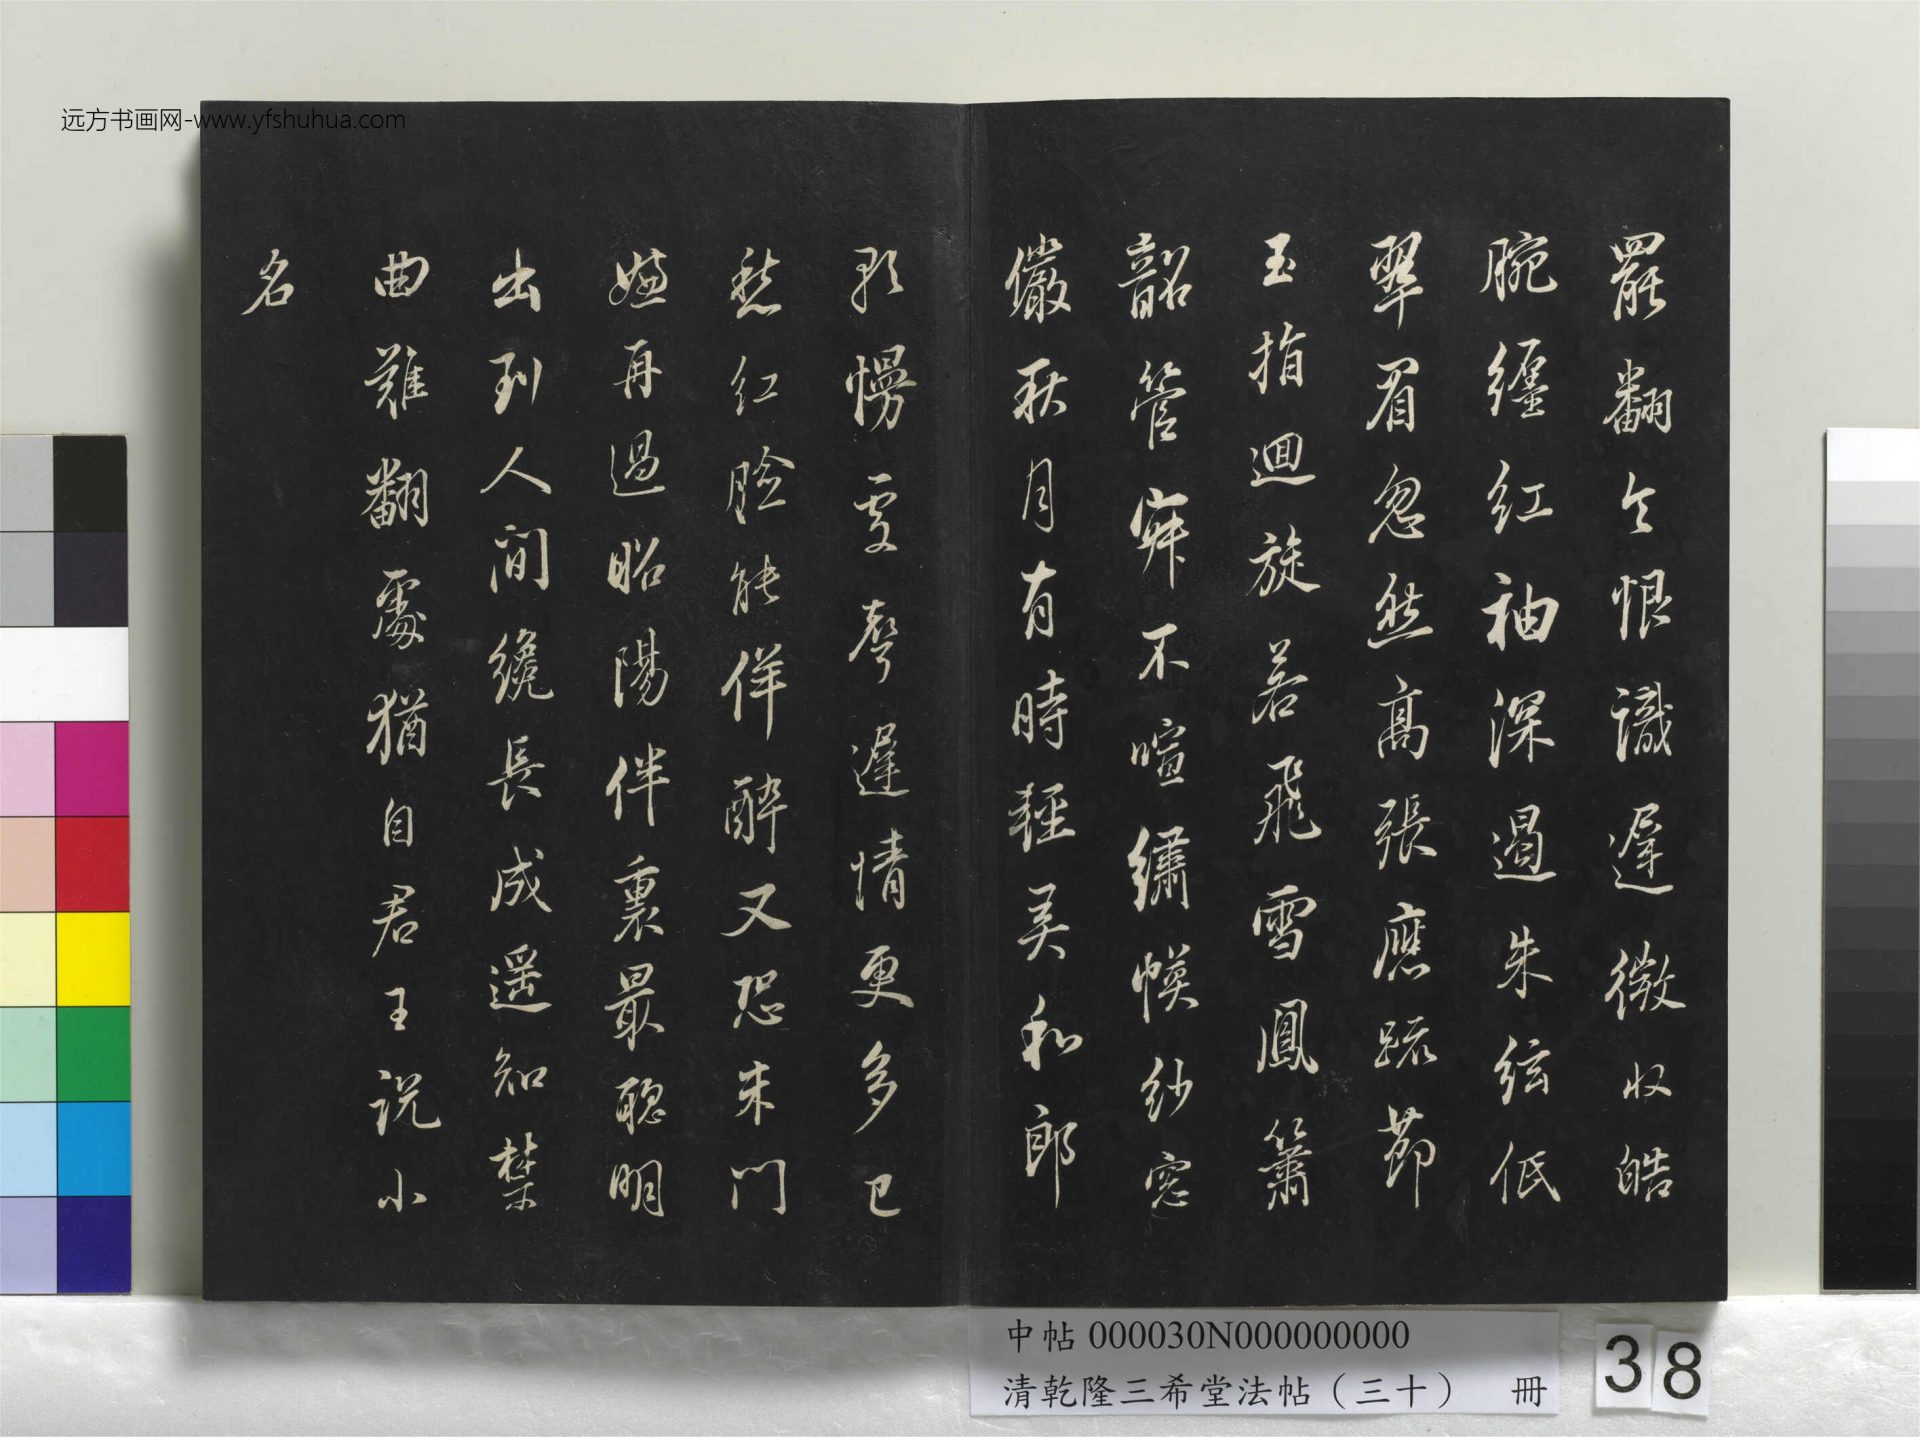 远方书画网-www.yfshuhua.com
罷翻令恨識遲微收皓
腕纏紅袖深遏朱絃低
翠眉忽然高張應疏節
玉指迴旋若飛雪鳳簫
韶管寂不喧繡幙紗窓
儼秋月有時輕弄和郎
歌慢處聲遲情更多已
愁紅臉能佯醉又恐朱門
嫌再過昭陽伴裏最聰明
出到人間纔長成遥知禁
曲難翻處猶自君王說小
名
中帖 000030N000000000
清乾隆三希堂法帖（三十） 冊
38